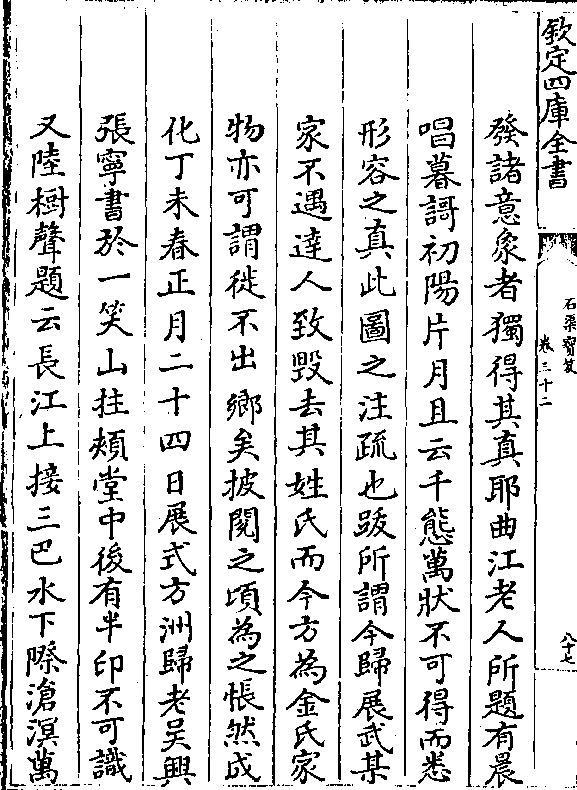 欽定四庫全書
石渠寶笈
卷三十二
八十七
發諸意象者獨得其真耶曲江老人所題有晨
唱暮謌初陽片月且云千態萬狀不可得而悉
形容之真此圖之注疏也跋所謂今歸展武某
家不遇達人致毀去其姓氏而今方為金氏家
物亦可謂徙不出鄉矣披閱之頃為之悵然成
化丁未春正月二十四日展式方洲歸老吳興
張寧書於一笑山拄頰堂中後有半印不可識
又陸樹聲題云長江上接三巴水下際滄溟萬